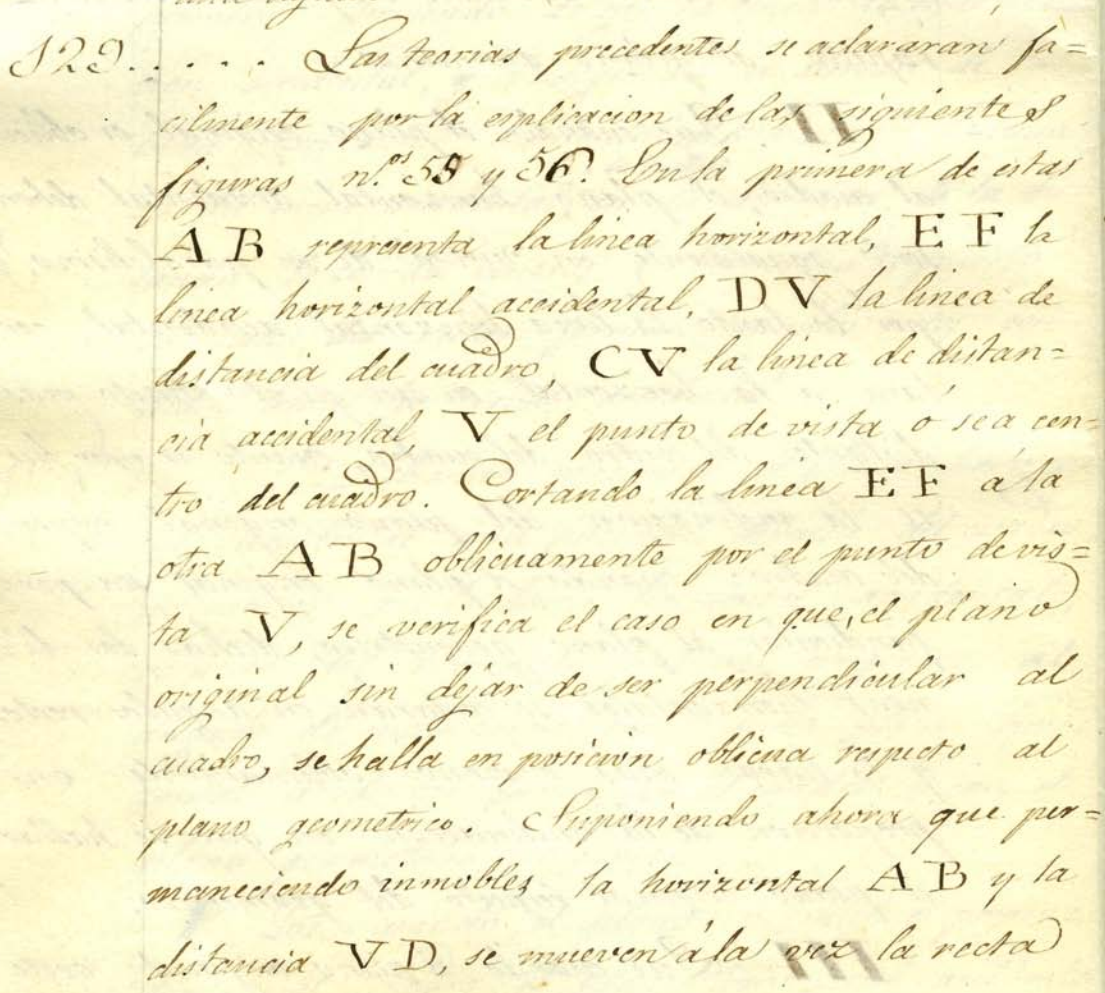 129. . . . . Las teorias precedentes se aclararán fa=
cilmente por la esplicacion de las siguientes
figuras n.os 55 y 56. En la primera de estas
AB representa la linea horizontal, EF la
linea horizontal accidental, DV la linea de
distancia del cuadro, CV la linea de distan=
cia accidental, V el punto de vista ó sea cen=
tro del cuadro. Cortando la linea EF á la
otra AB oblicuamente por el punto de vis=
ta V, se verifica el caso en que, el plano
original sin dejar de ser perpendicular al
cuadro, se halla en posicion oblicua respecto al
plano geometrico. Suponiendo ahora que per=
maneciendo inmobles la horizontal AB y la
distancia VD, se mueven á la vez la recta